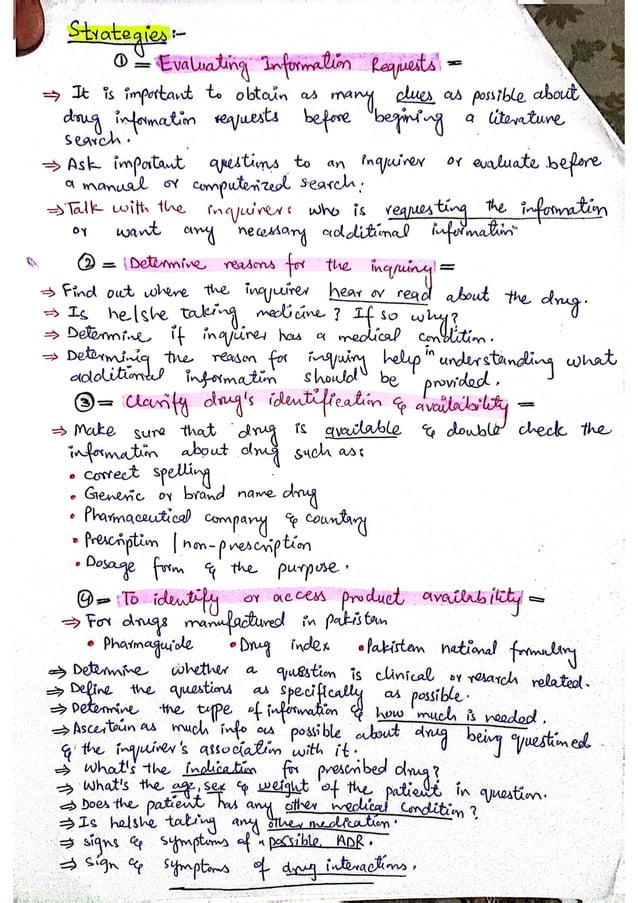 Strategies :-
① = Evaluating Information Requests =
⇒ It is important to obtain as many clues as possible about
drug information requests before begining a literature
search.
⇒ Ask important questions to an inquirer or evaluate before
a manual or computerized search.
⇒ Talk with the inquirers who is requesting the information
or want any necessary additional information"
② = Determine reasons for the inquiny =
⇒ Find out where the inquirer hear or read about the drug.
⇒ Is he/she taking medicine? If so why?
⇒ Determine if inquirer has a medical condition.
⇒ Determinig the reason for inquiry help in understanding what
additional information should be provided.
③ = Clarify drug's identification & availability =
⇒ Make sure that drug is available & double check the
information about drug such as:
• correct spelling
• Generic or brand name drug
• Pharmaceutical company & countary
• Prescription / non-prescription
• Dosage form & the purpose.
④ = To identify or access product availability =
⇒ For drugs manufactured in Pakistan
• Pharmaguide • Drug index • Pakistan national formulary
⇒ Determine whether a question is clinical or resarch related.
⇒ Define the questions as specifically as possible.
⇒ Determine the type of information & how much is needed.
⇒ Ascertain as much info as possible about drug being questioned
& the inquirer's association with it.
⇒ What's the indication for prescribed drug?
⇒ What's the age, sex & weight of the patient in question.
⇒ Does the patient has any other medical condition?
⇒ Is he/she taking any other medication.
⇒ signs & symptoms of a possible ADR.
⇒ sign & symptoms of drug interactions.